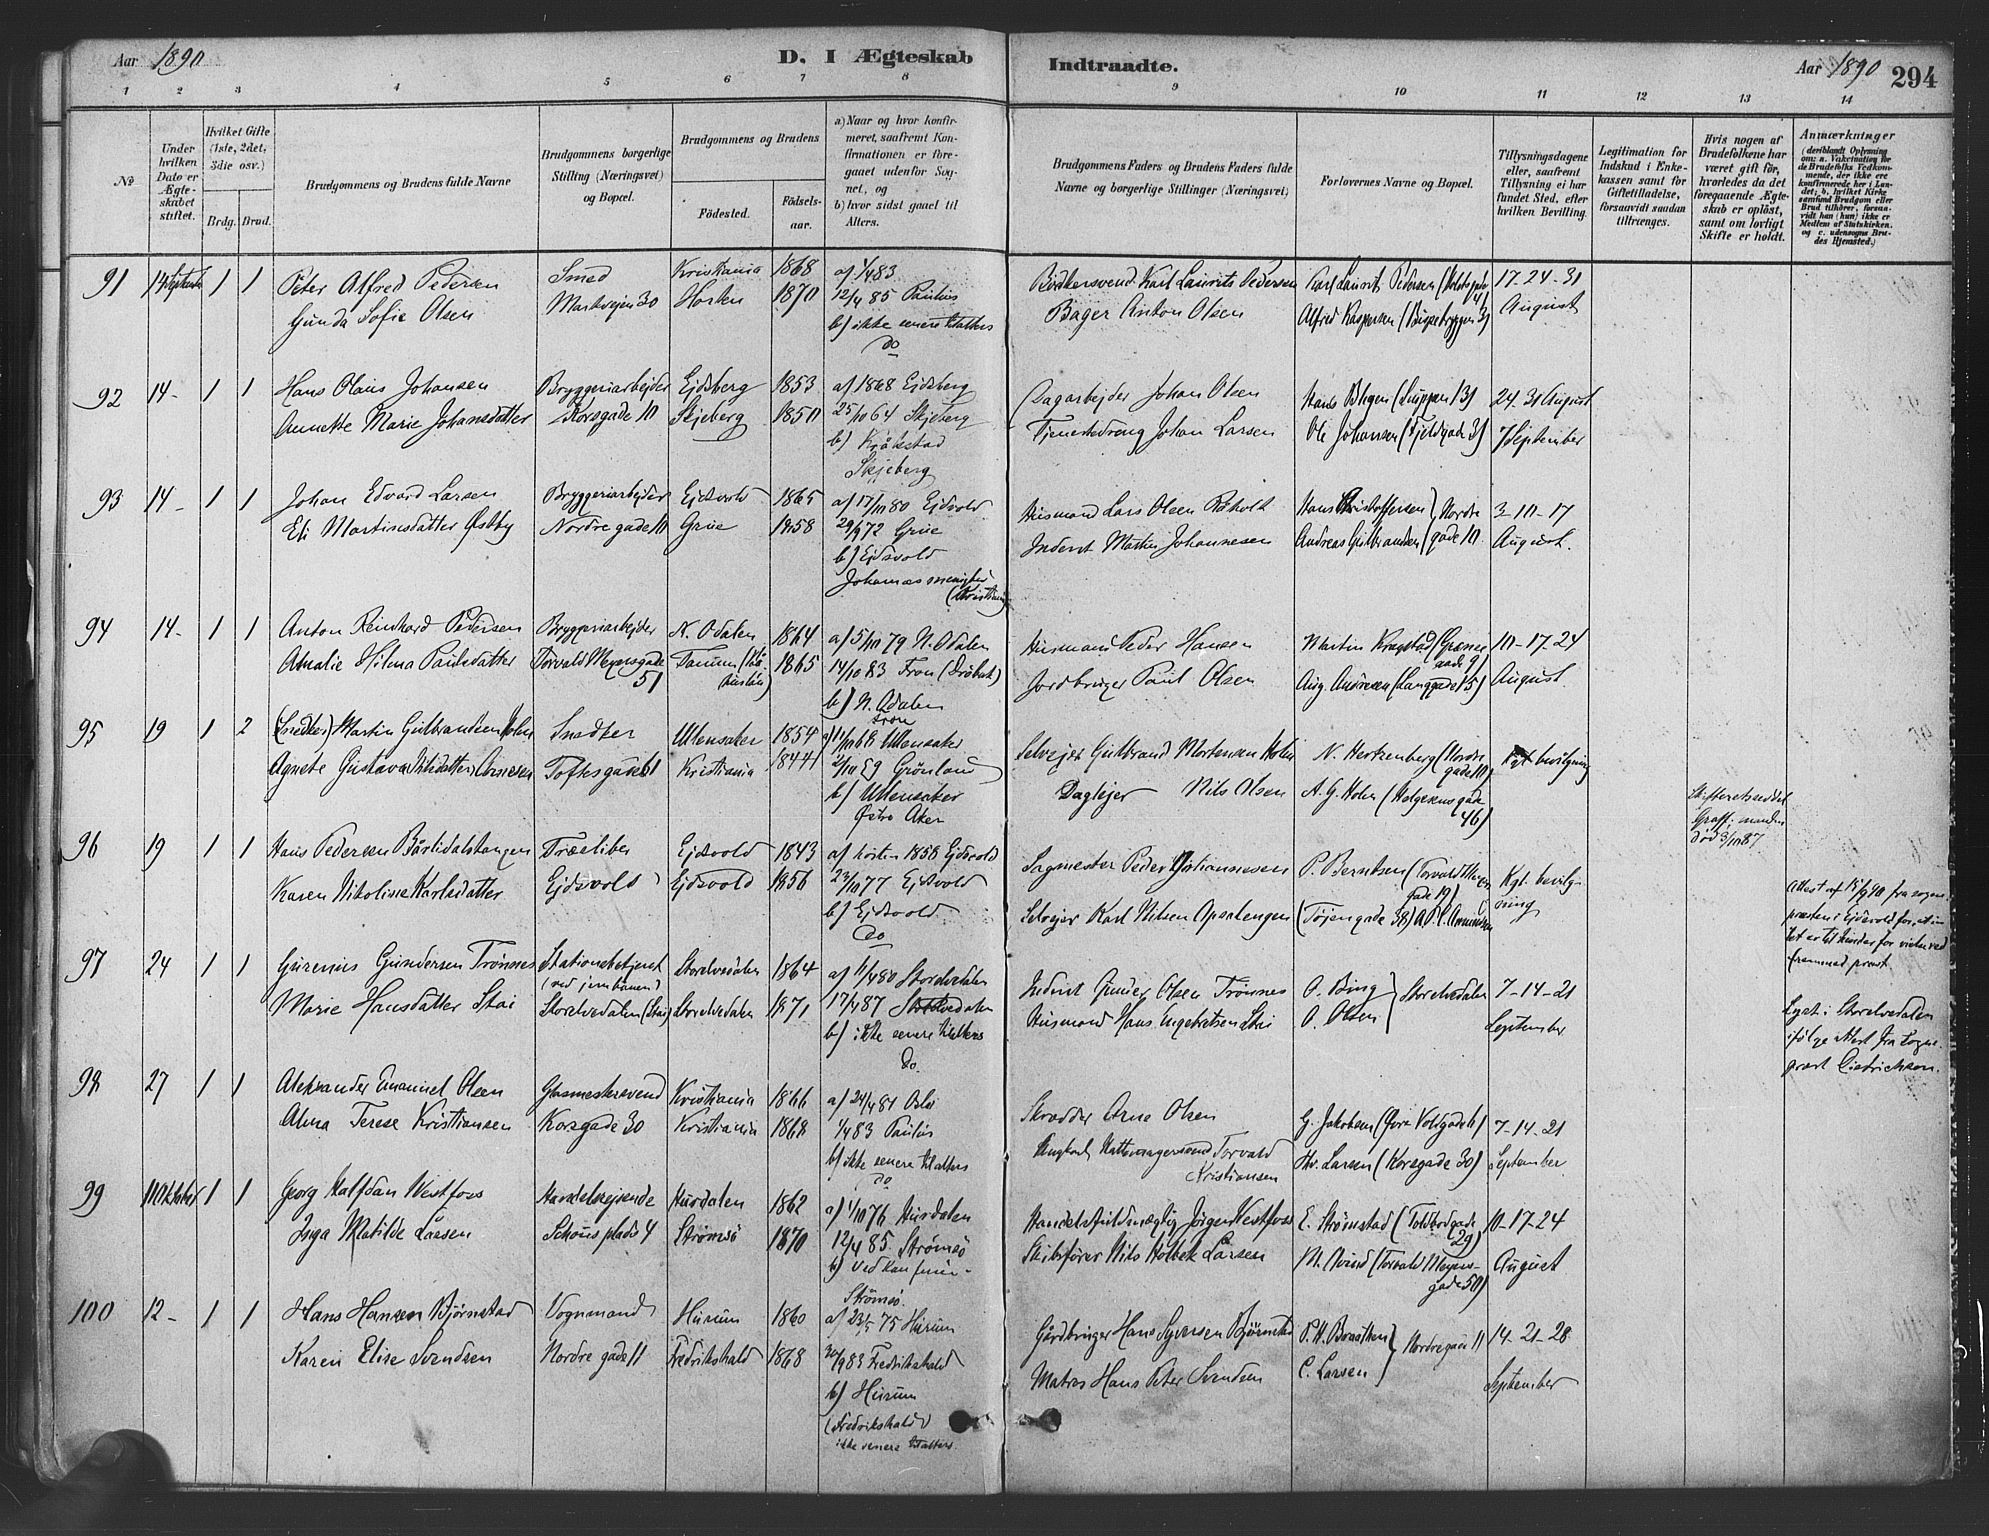 Aar 1890
D. I Ægteskab Indtraadte.
Aar 1890
294
1 2 3 4 5 6 7 8 9 10 11 12 13 14
No
Under hvilken Dato er Ægteskabet stiftet.
Hvilket Gifte (1ste, 2det, 3die osv.)
Brdg. Brud.
Brudgommens og Brudens fulde Navne
Brudgommens borgerlige Stilling (Næringsvei) og Bopæl.
Brudgommens og Brudens
Fødested.
Fødselsaar.
a) Naar og hvor konfirmeret, saafremt Konfirmationen er foregaaet udenfor Sognet, og
b) hvor sidst gaaet til Alters.
Brudgommens Faders og Brudens Faders fulde Navne og borgerlige Stillinger (Næringsvei)
Forlovernes Navne og Bopæl.
Tillysningsdagene eller, saafremt Tillysning ei har fundet Sted, efter hvilken Bevilling.
Legitimation for Indskud i Enkekassen samt for Giftetilladelse, forsaavidt saadan tiltrænges.
Hvis nogen af Brudefolkene har været gift før, hvorledes da det foregaaende Ægteskab er opløst, samt om lovligt Skifte er holdt.
Anmærkninger
91 14 September 1 1 Peter Alfred Pedersen Smed Kristiania 1868 a) 1/4 83
Gunda Sofie Olsen Markvejen 30 Horten 1870 12/4 85 Paulus
b) ikke senere til alters
do
Karl Laurits Pedersen Karl Laurits Pedersen 17-24-31
Bager Anton Olsen Alfred Kaspersen August
92 14- 1 1 Hans Olaus Johansen Bryggeriarbejder Ejdsberg 1853 a) 1868 Ejdsberg
Annette Marie Johansdatter Korsgade 10 Skjeberg 1850 25/10 64 Skjeberg
b) Kråkstad
Skjeberg
Dagarbejder Johan Olsen 24-31 August
Tjenestedreng Johan Larsen Ole Johansen 7 September
93 14- 1 1 Johan Edvard Larsen Bryggeriarbejder Ejdsvold 1865 a) 17/10 80 Ejdsvold
Eli Martinsdatter Østby Nordre gade 10 Grue 1858 29/9 72 Grue
b) Ejdsvold
Johannes menighed
(Kristiania)
Husmand Lars Olsen Hans Kristoffersen } Nordre 3-10-17
Inderst Johannesen Andreas Gulbrandsen } gade 10 August.
94 14- 1 1 Anton Reinhard Pedersen Bryggeriarbejder N. Odalen 1864 a) 5/10 79 N. Odalen
Amalie Hilma Paulsdatter Torvald Meyersgade 51 1865 14/10 83 (Drøbak)
b) N. Odalen
Husmand Peder Hansen Martin 10-17-24
Jordbruger Paul Olsen Aug. Andresen (Langgade 15) August.
95 19 1 2 (Snedker) Martin Gulbrandsen Holm Snedker Ullensaker 1854 Ullensaker
Agnete Gustava Toftesgade Kristiania 1844 Grønland
b) Ullensaker
Østre Aker
Selvejer Gulbrand Mortensen Holm N. Hertzenberg (Nordre gade 10) Kgt bevilgning
Daglejer Nils Olsen A. G. Holm (Holgersensgade 46)
død 3/10 87
96 19 1 1 Hans Pedersen Ejdsvold 1843 a) høsten 1858 Ejdsvold
Karen Nikoline Karlsdatter Ejdsvold Ejdsvold 1856 23/10 77 Ejdsvold
b) Ejdsvold.
do
Sagmester Peder Johannessen P. Berntsen (Torvald Meyersgade 19) Kgt. bevilgning
Selvejer Karl Nilsen (Tøjengade 38)
Attest af 18/9 90 fra sogne-
præsten i Ejdsvold for, at in-
tet er til hinder for vielse ved
fremmed præst
97 24 1 1 Gurenius Gundersen Trønnes Stationsbetjent Storelvedalen 1864 a) 11/4 80 Storelvedalen
(ved jernbanen)
Marie Hansdatter Stai Storelvedalen (Stai) Storelvedalen 1871 17/4 87 Storelvedalen
b) ikke senere til alters
do.
Inderst Gunder Olsen Trønnes O. Bing } Storelvedalen 7-14-21
Husmand Hans Engebretsen Stai O. Olsen September
Lyst i Storelvedalen
ifølge attest fra Sogne-
præst Dietrichson.
98 27 1 1 Aleksander Emanuel Olsen Glasmestersvend Kristiania 1866 a) 24/4 81 Oslo
Alma Terese Kristiansen Korsgade 30 Kristiania 1868 1/4 83 Paulus
b) ikke senere til alters
do
Skrædder Arne Olsen G. Jakobsen (Øvre Voldgade 6) 7-14-21
Torvald Kristiansen Hv. Larsen (Korsgade 30) September
99 10 Oktober 1 1 Georg Halfdan Westfoss Handelsrejsende Hurdalen 1862 a) 1/10 76 Hurdalen
Inga Matilde Larsen Schous plads 4 Strømsø 1870 12/4 85 Strømsø
b) ved konfirm-
Strømsø.
Handelsfuldmægtig Jørgen Westfoss E. Strømstad (Toldbodgade 29) 10-17-24
Skibsfører Nils Holbek Larsen (Torvald Meyersgade 50) August
100 12- 1 1 Hans Hansen Bjørnstad Vognmand Hurum 1860 a) 23/5 75 Hurum
Karen Elise Svendsen Nordre gade 11 Fredrikshald 1868 30/9 83 Fredrikshald
b) Hurum
(Fredrikshald)
ikke senere til alters.
Gårdbruger Hans Syversen Bjørnstad P. H. Braathen } Nordregade 11 14. 21. 28.
Matros Hans Peter Svendsen C. Larsen September